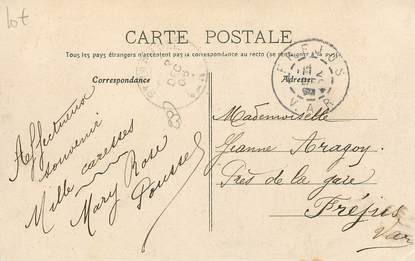 lot
CARTE POSTALE
Tous les pays étrangers n'acceptent pas la correspondance au recto (se renseigner à la poste)
Correspondance
Adresse
EVENOS
VAR
Affectueux
souvenir
Mille caresses
Mary Rose
Mademoiselle
Jeanne Aragoy
Près de la gare
Fréjus
Var